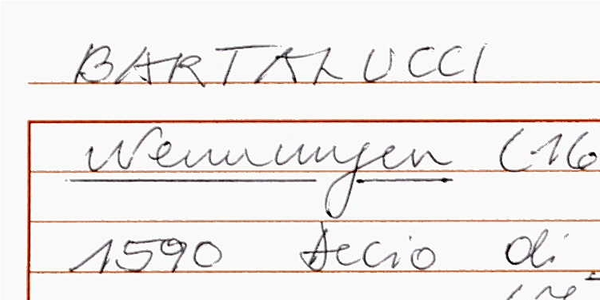 BARTALUCCI
Nennungen (16
1590 Decio di